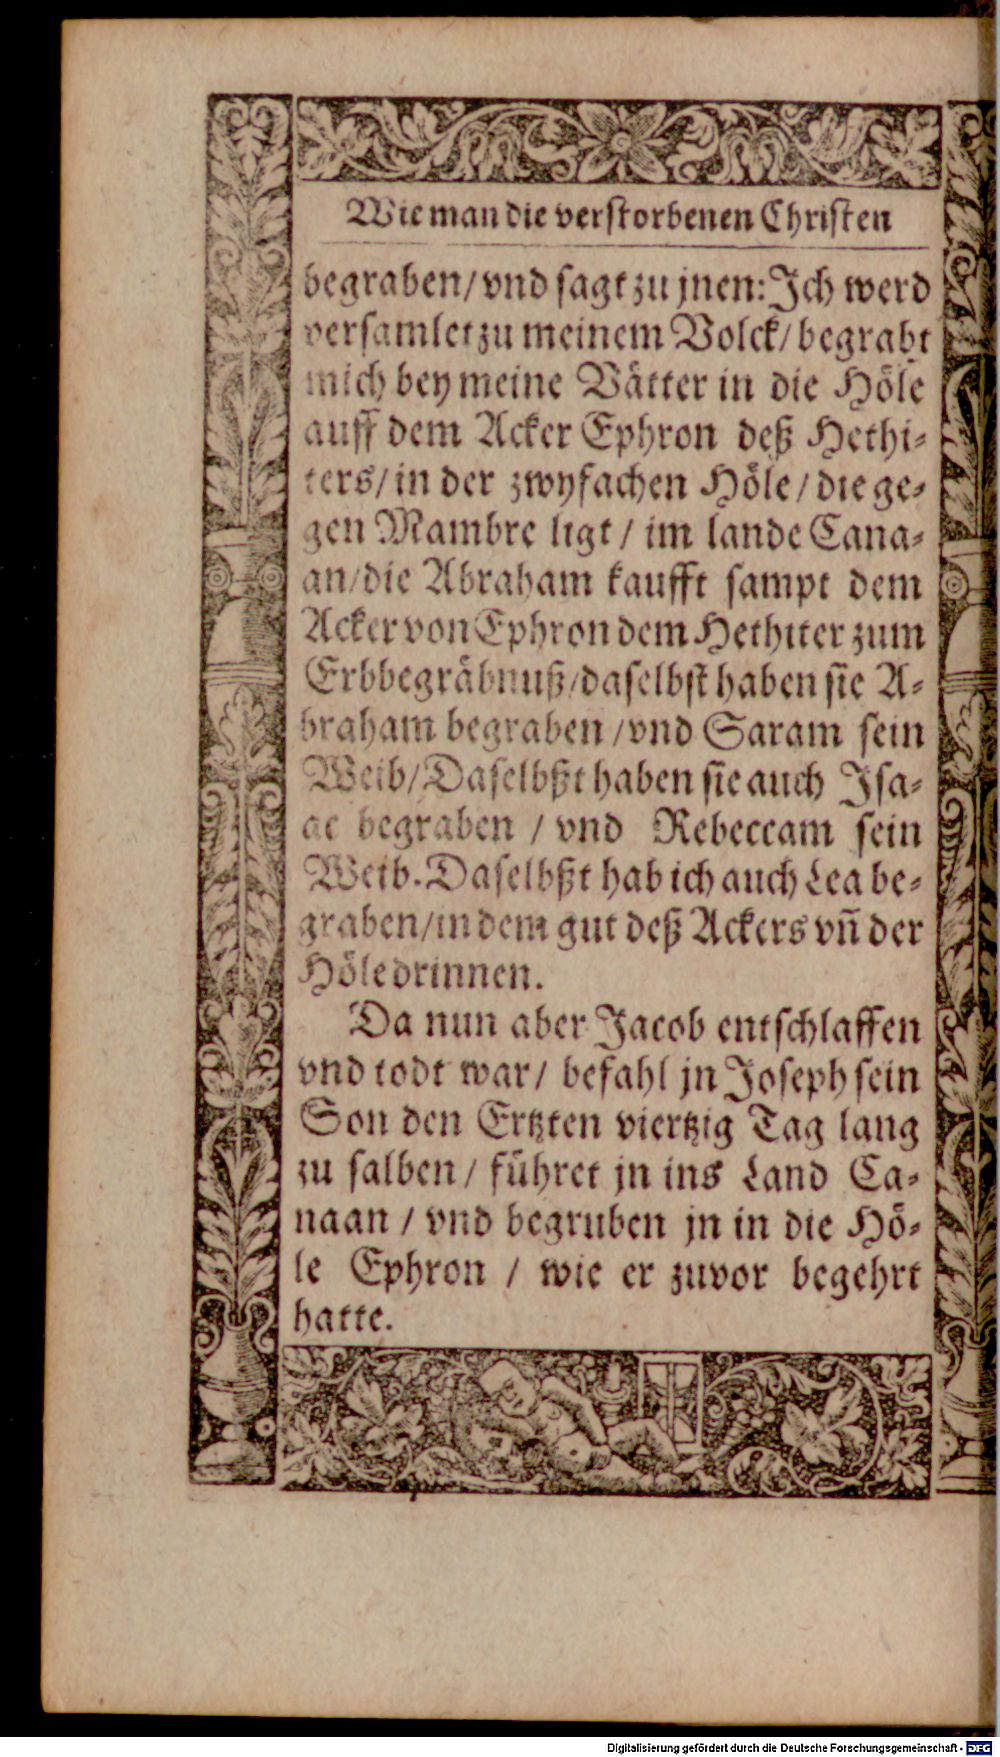 Wie man die verstorbenen Christen
begraben/ vnd sagt zu jnen: Ich werd
versamlet zu meinem Volck/ begrabt
mich bey meine Vätter in die Höle
auff dem Acker Ephron deß Hethi-
ters/ in der zwyfachen Höle/ die ge-
gen Mambre ligt/ im lande Cana-
an/ die Abraham kaufft sampt dem
Acker von Ephron dem Hethiter zum
Erbbegräbnuß/ daselbst haben sie A-
braham begraben/ vnd Saram sein
Weib/ Daselbßt haben sie auch Isa-
ac begraben/ vnd Rebeccam sein
Weib. Daselbßt hab ich auch Lea be-
graben/ in dem gut deß Ackers vñ der
Höle drinnen.
Da nun aber Jacob entschlaffen
vnd todt war/ befahl jn Joseph sein
Son den Ertzten viertzig Tag lang
zu salben/ führet jn ins Land Ca-
naan/ vnd begruben jn in die Hö-
le Ephron/ wie er zuvor begehrt
hatte.
Digitalisierung gefördert durch die Deutsche Forschungsgemeinschaft - DFG